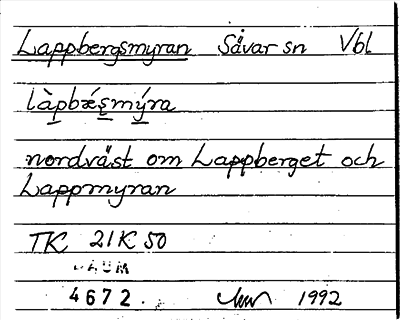 Lappbergsmyran Sävar sn Vbl
làpbǽr̥smýra
nordväst om Lappberget och
Lappmyran
TK 21K 50
DAUM
4672.
1992